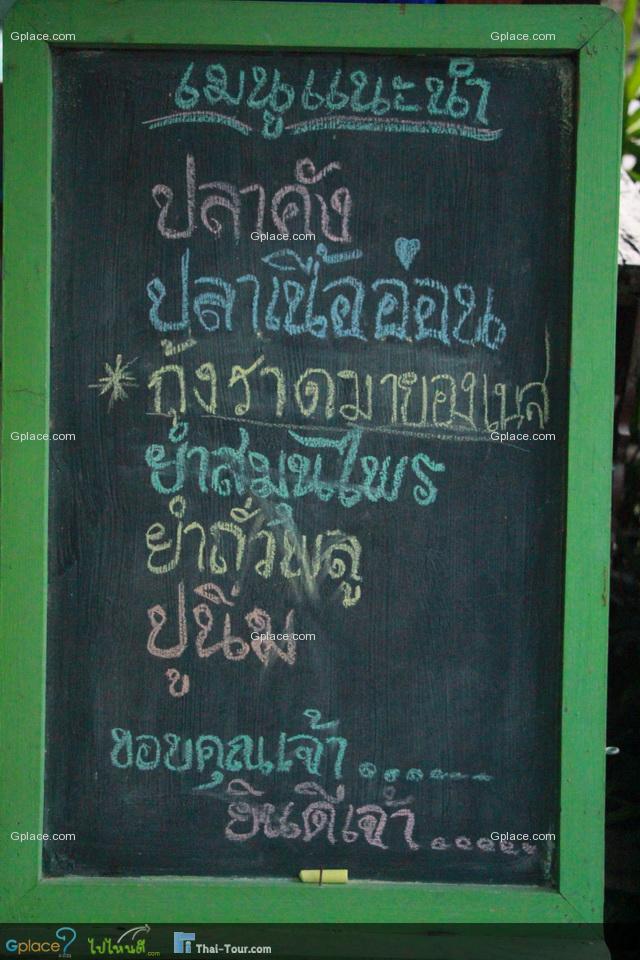 Gplace.com Gplace.com
เมนูแนะนำ
ปลาคัง
Gplace.com
ปลาเนื้ออ่อน
* กุ้งราดมายองเนส
Gplace.com Gplace.com
ยำสมุนไพร
ยำถั่วพลู
ปูนิ่ม
Gplace.com
ขอบคุณเจ้า ........
ยินดีเจ้า ........
Gplace.com Gplace.com
Gplace?.com ไปไหนดี.com Thai-Tour.com